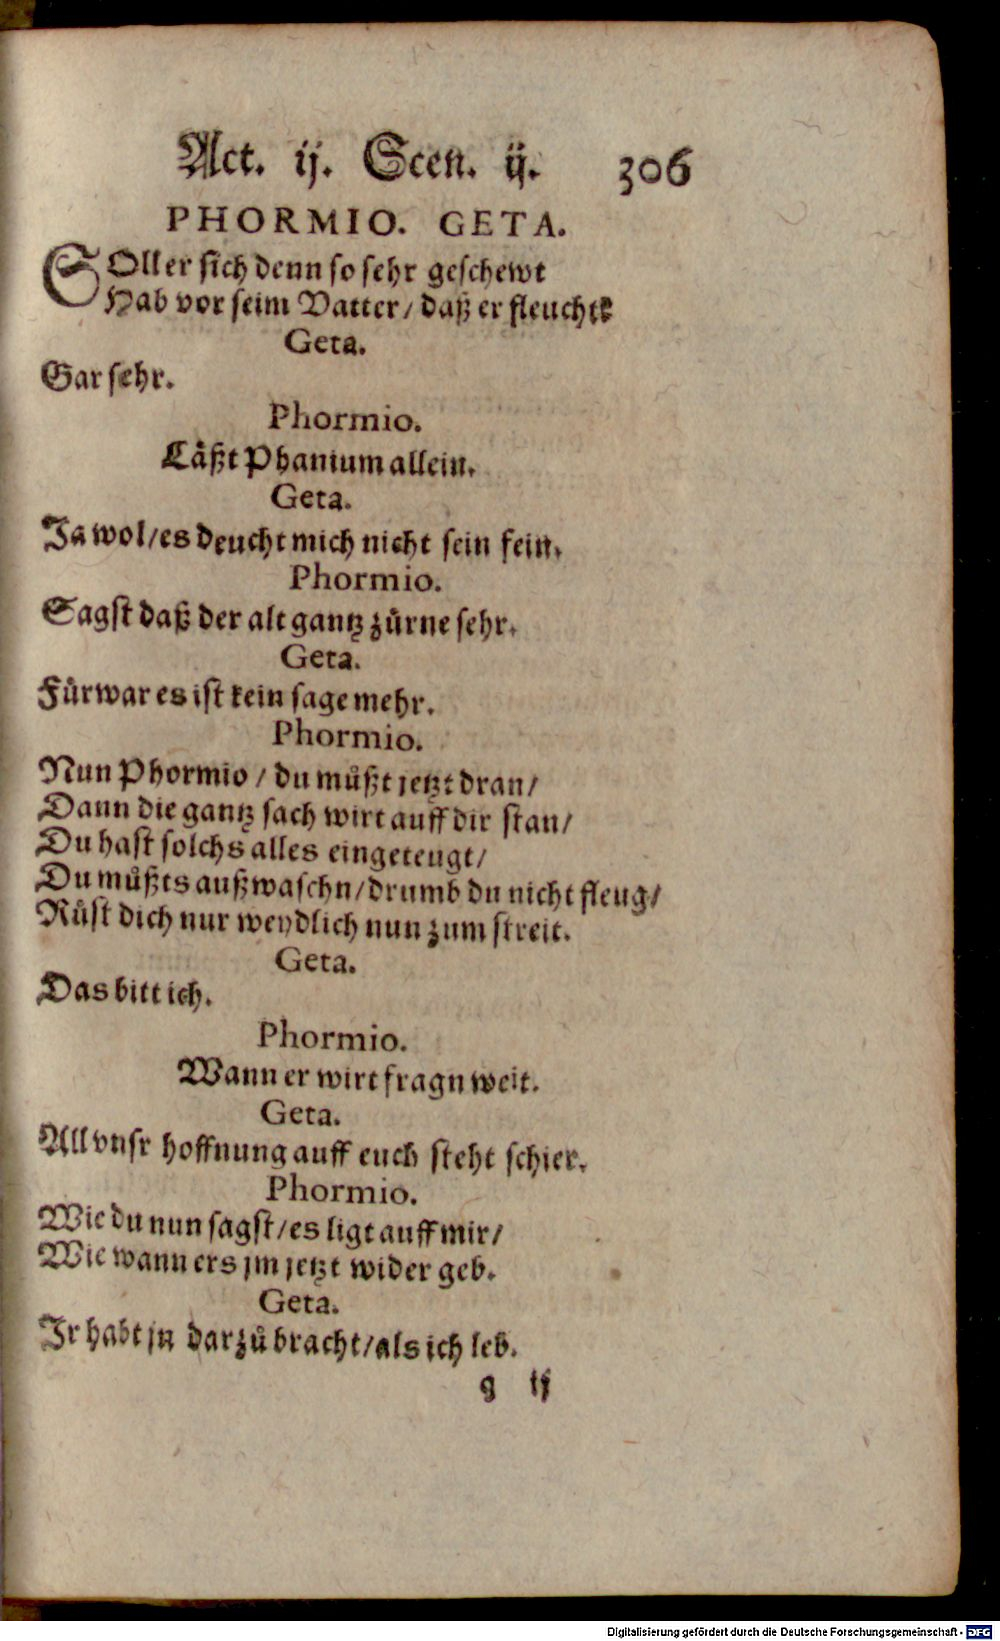 Act. ij. Scen. ij. 306
PHORMIO. GETA.
SOll er sich denn so sehr geschewt
Hab vor seim Vatter/ daß er fleucht?
Geta.
Gar sehr.
Phormio.
Läßt Phanium allein.
Geta.
Ja wol/ es deucht mich nicht sein fein.
Phormio.
Sagst daß der alt gantz zürne sehr.
Geta.
Fürwar es ist kein sage mehr.
Phormio.
Nun Phormio / du müßt jetzt dran/
Dann die gantz sach wirt auff dir stan/
Du hast solchs alles eingeteugt/
Du müßts außwaschn/ drumb du nicht fleug/
Rüst dich nur weydlich nun zum streit.
Geta.
Das bitt ich.
Phormio.
Wann er wirt fragn weit.
Geta.
All vnsr hoffnung auff euch steht schier.
Phormio.
Wie du nun sagst/ es ligt auff mir/
Wie wann ers jm jetzt wider geb.
Geta.
Jr habt jn darzů bracht/ als ich leb.
g ij
Digitalisierung gefördert durch die Deutsche Forschungsgemeinschaft - DFG